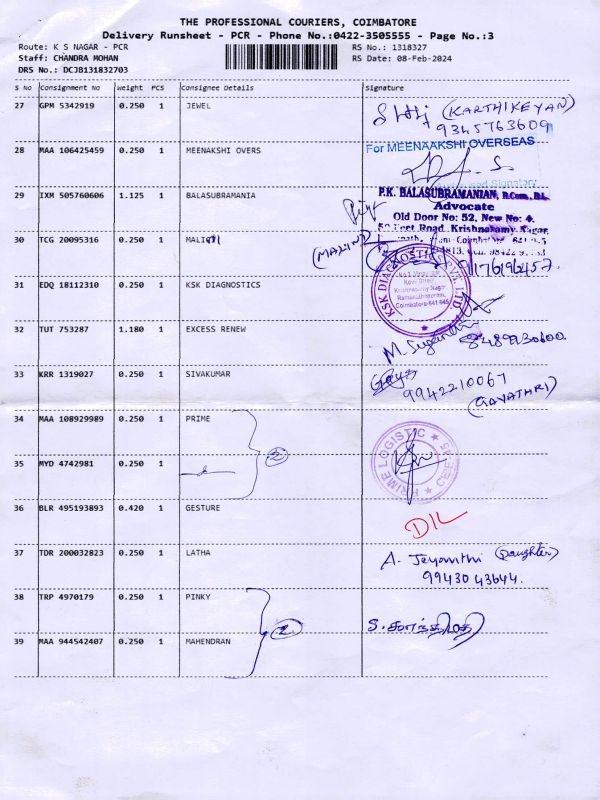 THE PROFESSIONAL COURIERS, COIMBATORE
Delivery Runsheet - PCR - Phone No.:0422-3505555 - Page No.:3
Route: K S NAGAR - PCR RS No.: 1318327
Staff: CHANDRA MOHAN RS Date: 08-Feb-2024
DRS No.: DCJB131832703
S No Consignment No Weight PCS Consignee Details Signature
27 GPM 5342919 0.250 1 JEWEL (KARTHIKEYAN)
9345763609
28 MAA 106425459 0.250 1 MEENAKSHI OVERS For MEENAAKSHI OVERSEAS
29 IXM 505760606 1.125 1 BALASUBRAMANIA P.K. BALASUBRAMANIAN, B.Com., B.L.
Advocate
Old Door No: 52, New No: 4.
Feet Road, Krishnasamy Nagar,
30 TCG 20095316 0.250 1
31 EDQ 18112310 0.250 1 KSK DIAGNOSTICS KSK DIAGNOSTICS PVT. LTD
Krishnasamy Nagar
Ramanathapuram,
Coimbatore-641 045
32 TUT 753287 1.180 1 EXCESS RENEW
33 KRR 1319027 0.250 1 SIVAKUMAR 9942210067
(GAYATHRI)
34 MAA 108929989 0.250 1 PRIME PRIME LOGISTIC
35 MYD 4742981 0.250 1 2
36 BLR 495193893 0.420 1 GESTURE D/L
37 TDR 200032823 0.250 1 LATHA A. Jeyanthi (Daughter)
99430 43644.
38 TRP 4970179 0.250 1 PINKY
39 MAA 944542407 0.250 1 MAHENDRAN 2